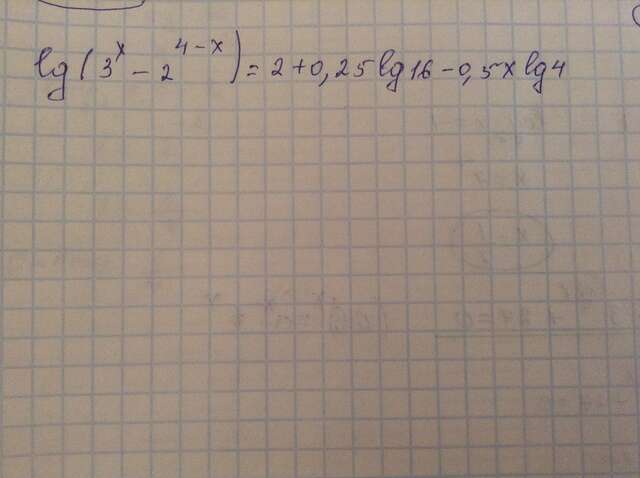 lg(3^x - 2^{4-x}) = 2 + 0,25 lg 16 - 0,5x lg 4